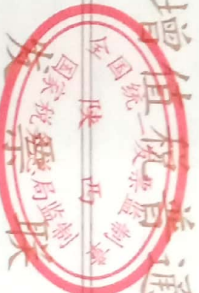 增值税普通
发票联
全国统一发票监制章
陕西
国家税务局监制